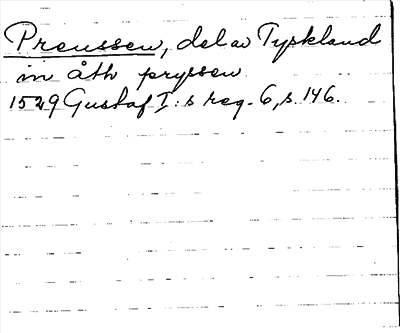 Preussen, del av Tyskland
in åth pryssen
1529 Gustaf I:s reg. 6, s. 146.